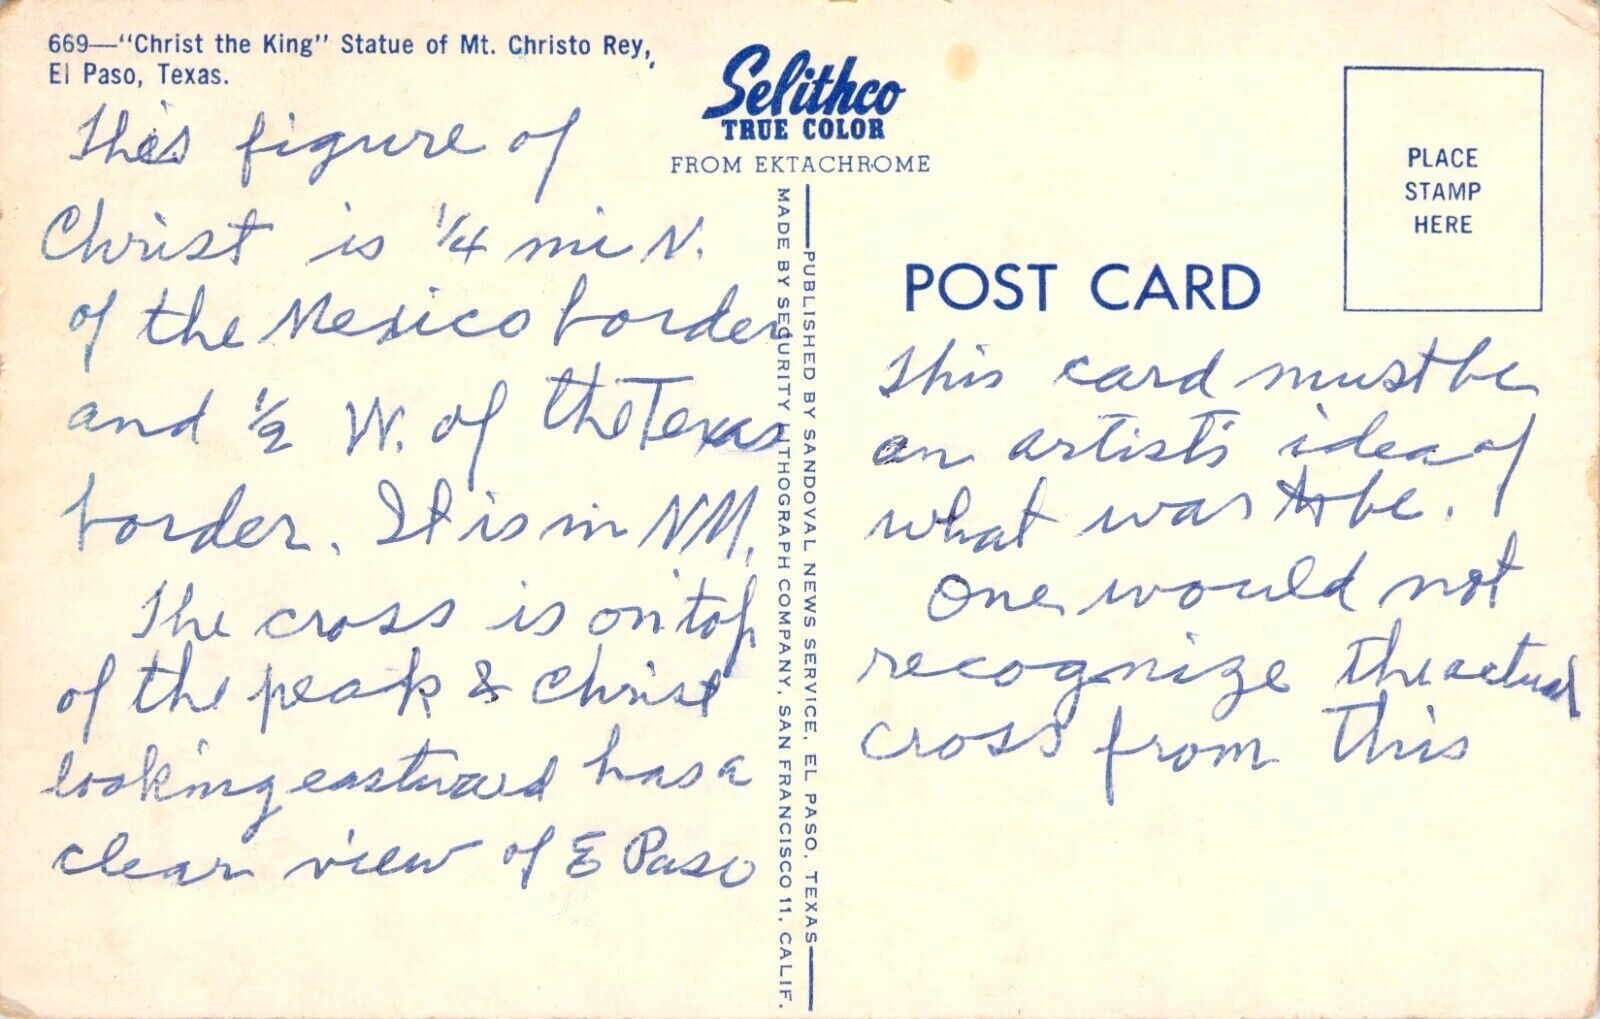 669—"Christ the King" Statue of Mt. Christo Rey,
El Paso, Texas.
This figure of
Christ is 1/4 mi N.
of the Mexico border
and 1/2 W. of the Texas
border. It is in NM.
The cross is on top
of the peak & Christ
looking eastward has a
clear view of E Paso
Selithco
TRUE COLOR
FROM EKTACHROME
PUBLISHED BY SANDOVAL NEWS SERVICE, EL PASO, TEXAS
MADE BY SECURITY LITHOGRAPH COMPANY, SAN FRANCISCO 11, CALIF.
PLACE
STAMP
HERE
POST CARD
This card must be
an artist's idea of
what was to be.
One would not
recognize the actual
cross from this